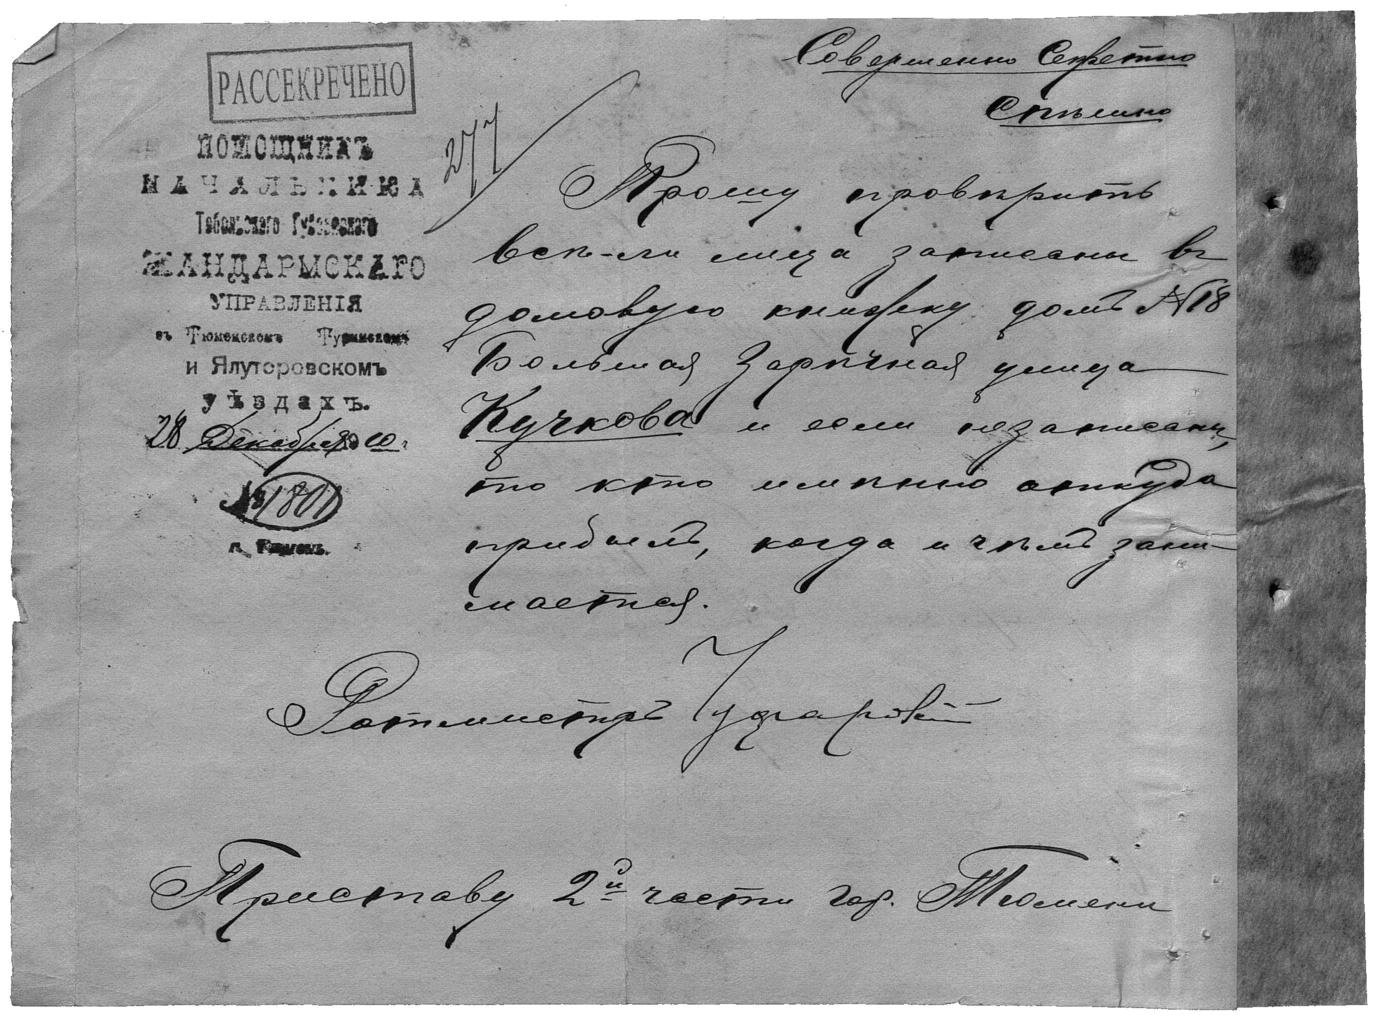 РАССЕКРЕЧЕНО
ПОМОЩНИКЪ
НАЧАЛЬНИКА
Тобольскаго Губернскаго
ЖАНДАРМСКАГО
УПРАВЛЕНІЯ
въ Тюменскомъ Туринскомъ
и Ялуторовскомъ
уѣздахъ.
28 Декабря 1910 г.
№ 1801
г. Тюмень.
277
Совершенно Секретно
Спѣшно
Прошу провѣрить
всѣ-ли лица записаны въ
домовую книжку домъ №18
Большая Зарѣчная улица
Кучкова и если незаписаны,
то кто именно откуда
прибылъ, когда и чѣмъ зани-
мается.
Ротмистръ
Приставу 2й части гор. Тюмени